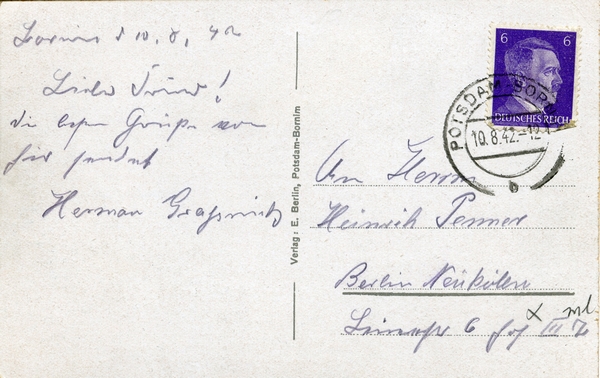 Bornim d 10. 8. 42
Lieber Freund!
die besten Grüße von
hier sendet
Herman
Verlag: E. Berlin, Potsdam-Bornim
6 6
DEUTSCHES REICH
POTSDAM-BOR
10.8.42.-12
b
An Herrn
Heinrich Penner
Berlin Neukölln
6 Hof III